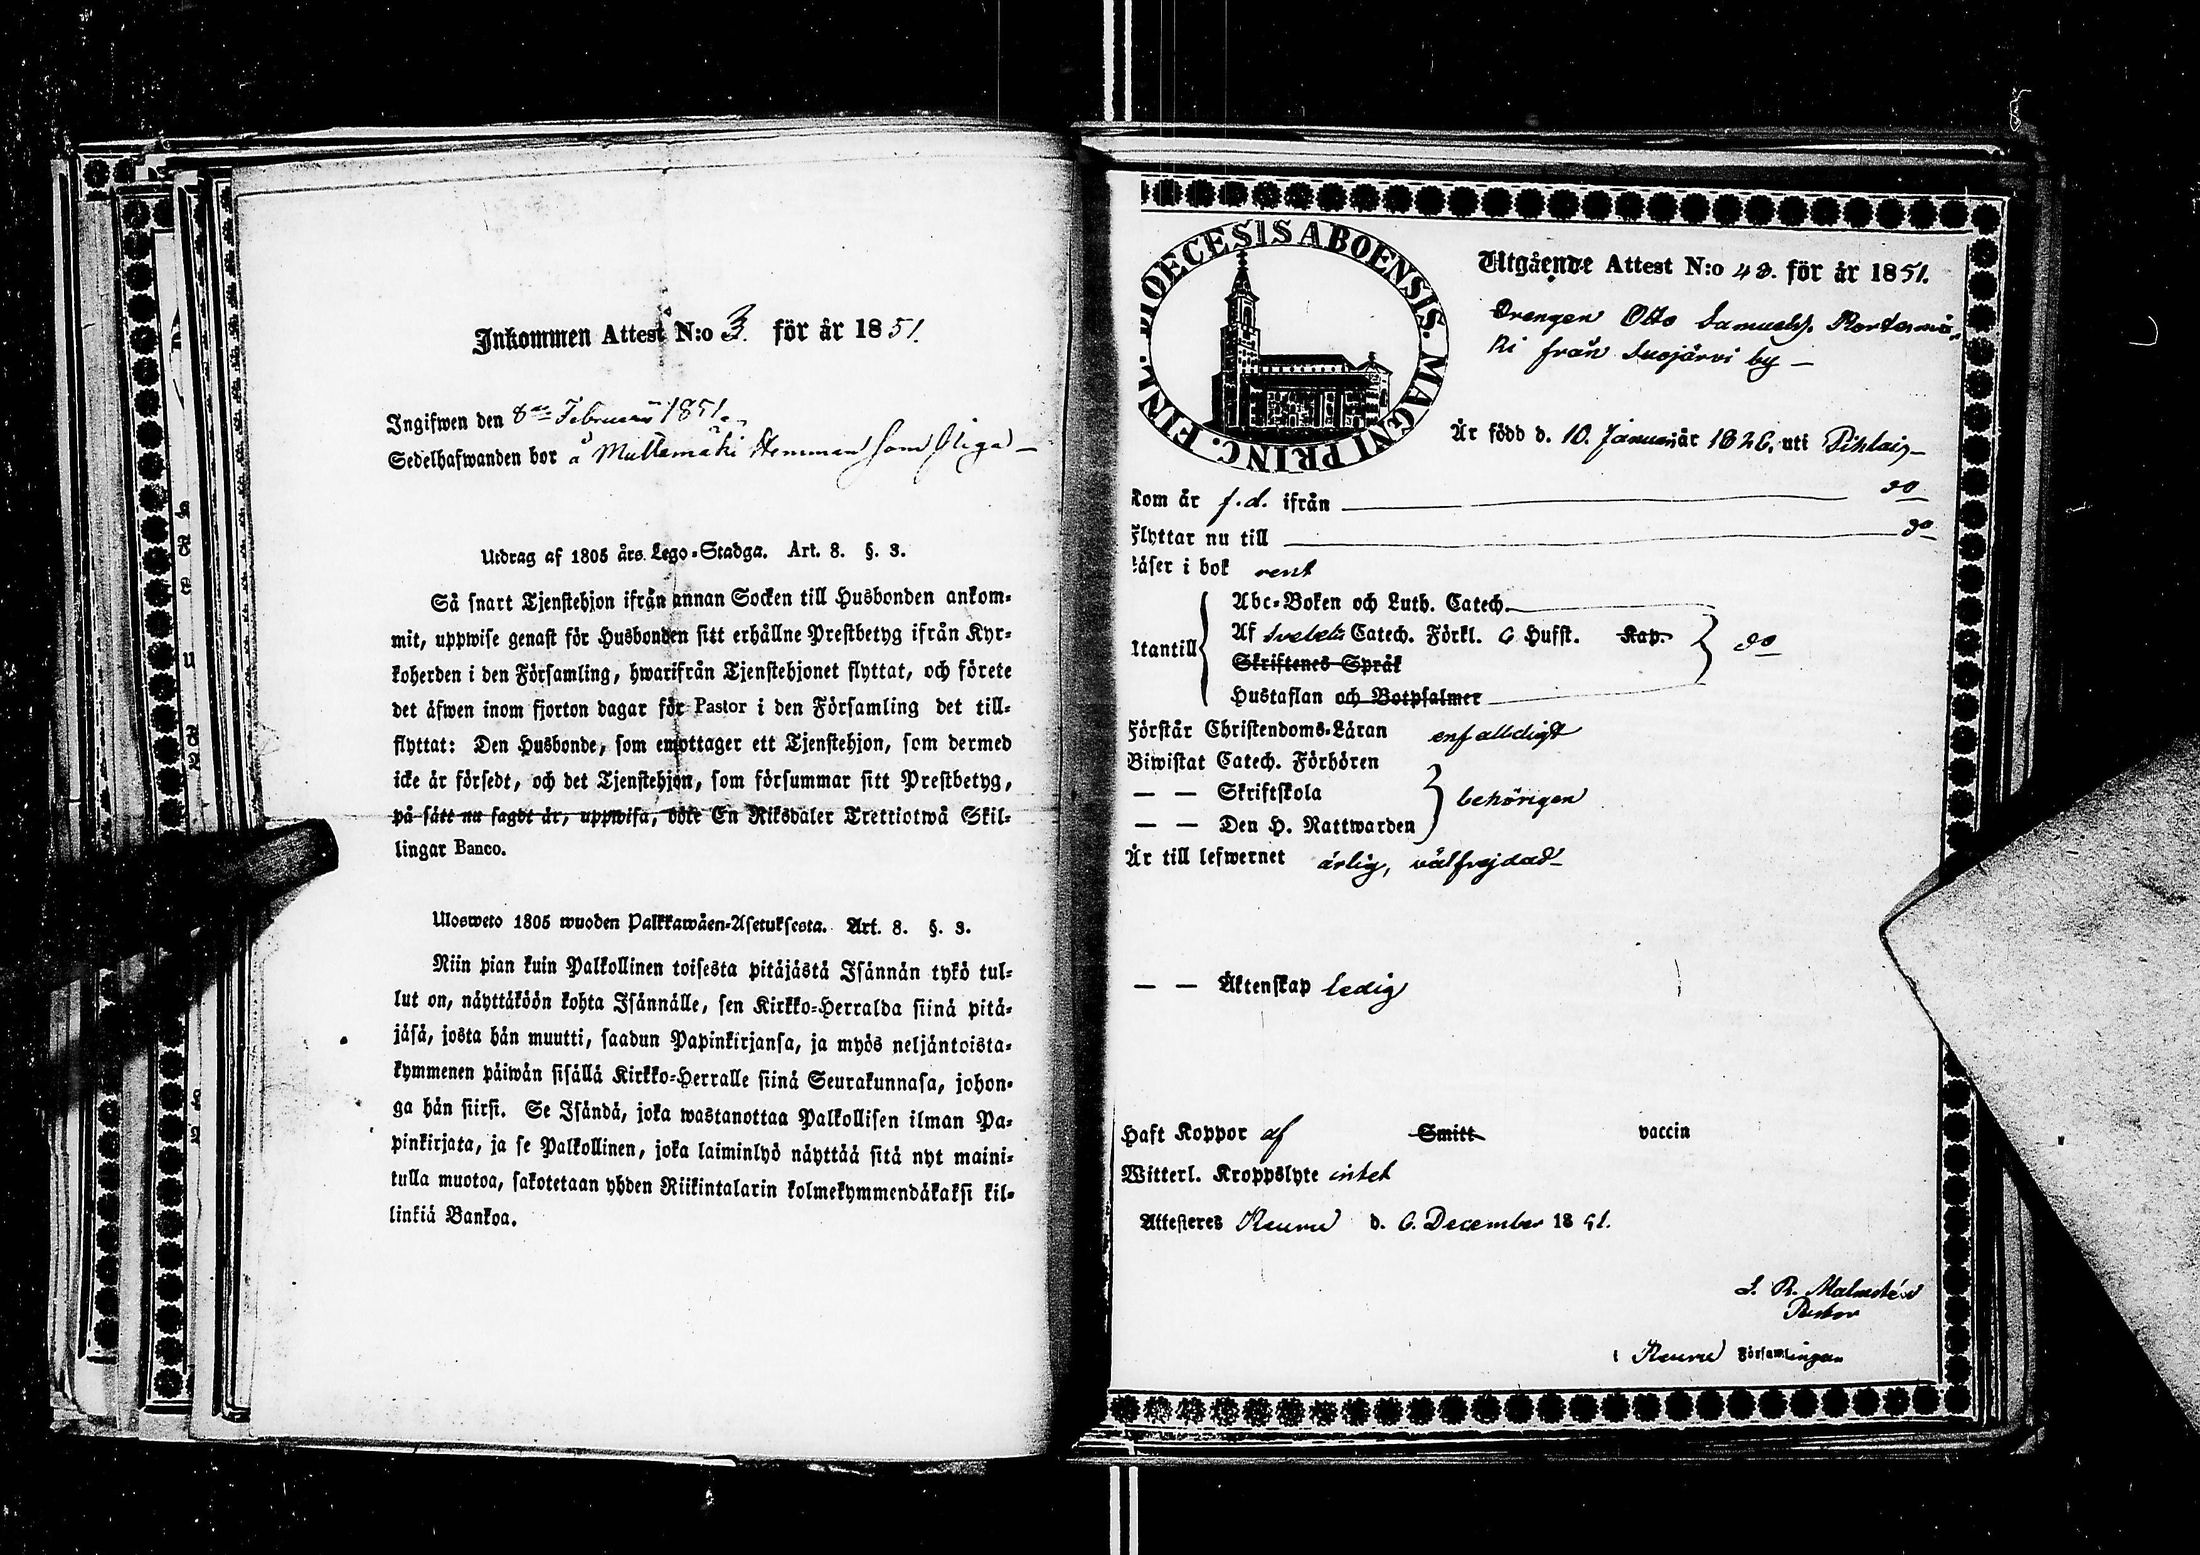 Inkommen Attest N:o 3. för år 1851.
Ingifwen den 8de Februarii 1851.
Sedelhafwanden bor å Multamäki Hemman som Piga
Utdrag af 1805 års Lego-Stadga. Art. 8. §. 3.
Så snart Tjenstehjon ifrån annan Socken till Husbonden ankom-
mit, uppwise genast för Husbonden sitt erhållne Prestbetyg ifrån Kyr-
koherden i den Församling, hwarifrån Tjenstehjonet flyttat, och förete
det äfwen inom fjorton dagar för Pastor i den Församling det till-
flyttat: Den Husbonde, som emottager ett Tjenstehjon, som dermed
icke är försedt, och det Tjenstehjon, som försummar sitt Prestbetyg,
på sätt nu sagdt är, uppwisa, böte En Riksdaler Trettiotwå Skil-
lingar Banco.
Ulosweto 1805 wuoden Palkkawäen-Asetuksesta. Art. 8. §. 3.
Niin pian kuin Palkollinen toisesta pitäjästä Isännän tykö tul-
lut on, näyttäköön kohta Isännälle, sen Kirkko-Herralda siinä pitä-
jäsä, josta hän muutti, saadun Papinkirjansa, ja myös neljäntoista-
kymmenen päiwän sisällä Kirkko-Herralle siinä Seurakunnasa, johon-
ga hän siirsi. Se Isändä, joka wastanottaa Palkollisen ilman Pa-
pinkirjata, ja se Palkollinen, joka laiminlyö näyttää sitä nyt maini-
tulla muotoa, sakotetaan yhden Riikintalarin kolmekymmendäkaksi kil-
linkiä Bankoa.
DIOECESIS ABOENSIS. MAGNI PRINC. FINL.
Utgående Attest N:o 48. för år 1851.
Drengen Otto Samuels.
ki från Suojärvi by
Är född d. 10. Januari är 1826. uti Pihlaj
Kom år f.d. ifrån do
Flyttar nu till do
Läser i bok rent
Abc-Boken och Luth. Catech.
Utantill Af Svebelii Catech. Förkl. 6 Hufst. Kap. do
Skriftenes Språk
Hustaflan och Botpsalmer
Förstår Christendoms-Läran enfalldigt
Biwistat Catech. Förhören
— — Skriftskola behörigen
— — Den H. Nattwarden
Är till lefwernet ärlig, välfrejdad
— — Äktenskap ledig
Haft Koppor af Smitt vaccin
Witterl. Kroppslyte intet
Attesteres Keuru d. 6. December 1851.
Malmstén
Pastor
i Keuru Församlingen